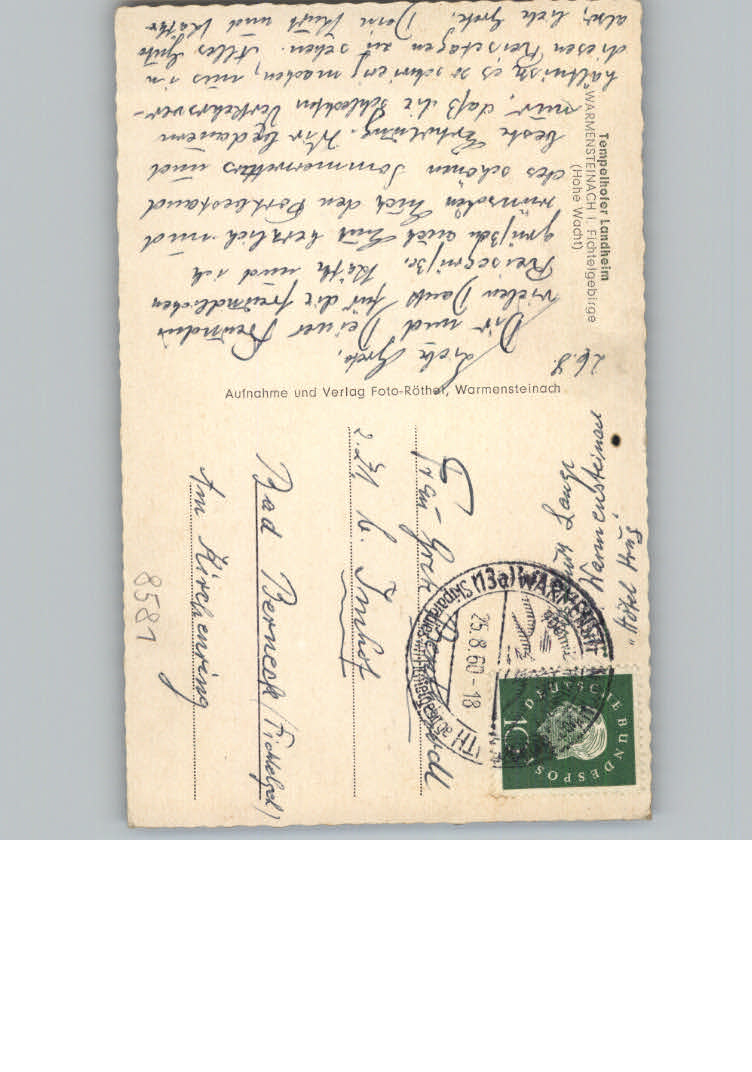 Tempelhofer Landheim
"WARMENSTEINACH i. Fichtelgebirge
(Hohe Wacht)
26.8.
Liebe Grete,
Dir und Deiner Freundin
vielen Dank für die freundlichen
Reisegrüße. Käthe und ich
grüßen auch Euch herzlich und
wünschen Euch den Fortbestand
des schönen Sommerwetters und
beste Erholung. Wir bedauern
nur, daß die schlechten Verkehrsver-
hältnisse es so schwierig machen, uns in
diesen Reisetagen zu sehen. Alles Gute
also, liebe Grete. Dein Kurt und Käthe
Aufnahme und Verlag Foto-Röthel, Warmensteinach
Lange
Warmensteinach
"Hotel
(13a) WARMENSTEINACH
25.8.60-18
DEUTSCHE BUNDESPOST
10
Frau Grete
z. Zt. b. Imhof
Bad Berneck / Fichtelgeb /
Am Kirchenring
8581